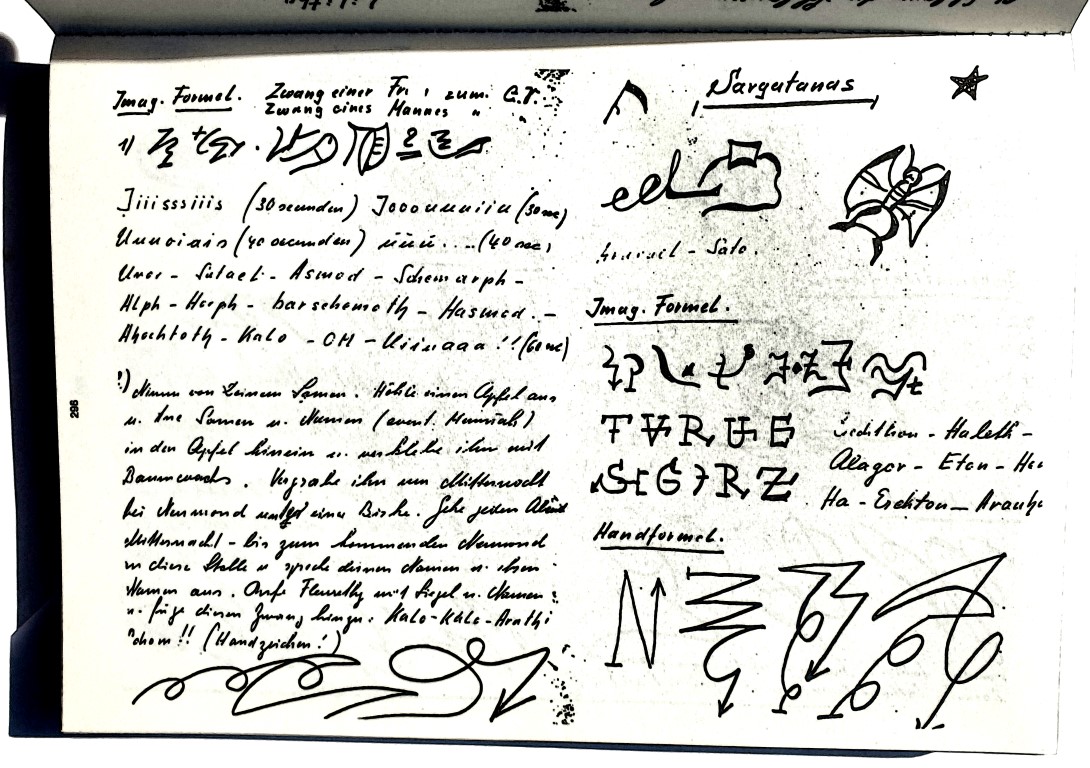 Imag. Formel. Zwang einer Fr zum C.V.
Zwang eines Mannes "
1)
Jiiisssiiis (30 secunden) Jooouuuiiu (30 sec)
Uuuoiais (40 secunden) üüü .... (40 sec)
Unor - Sutael - Asmod - Schemarph -
Alph - Horph - barschemoth - Hasmod. -
- Kalo - OM - Uiiuaaa !! (60 sec)
!) Nimm von Deinem Samen. Höhle einen Apfel aus
u. tue Samen u. Namen (event. )
in den Apfel hinein u. verklebe ihn mit
Baumwachs. Vergrabe ihn um Mitternacht
bei Neumond unter einer Birke. Gehe jeden Abend
Mitternacht - bis zum kommenden Neumond
an diese Stelle u. spreche deinen Namen u. ihren
Namen aus. Rufe Fleurethy mit Siegel u. Namen
u. füge diesen Zwang hinzu: Kalo-Kalo-Arathi
chom!! (Handzeichen!)
298
Sargatanas
- Sato.
Imag. Formel.
- Haleth -
Alagor - Eton -
Ha - Eschton -
Handformel.